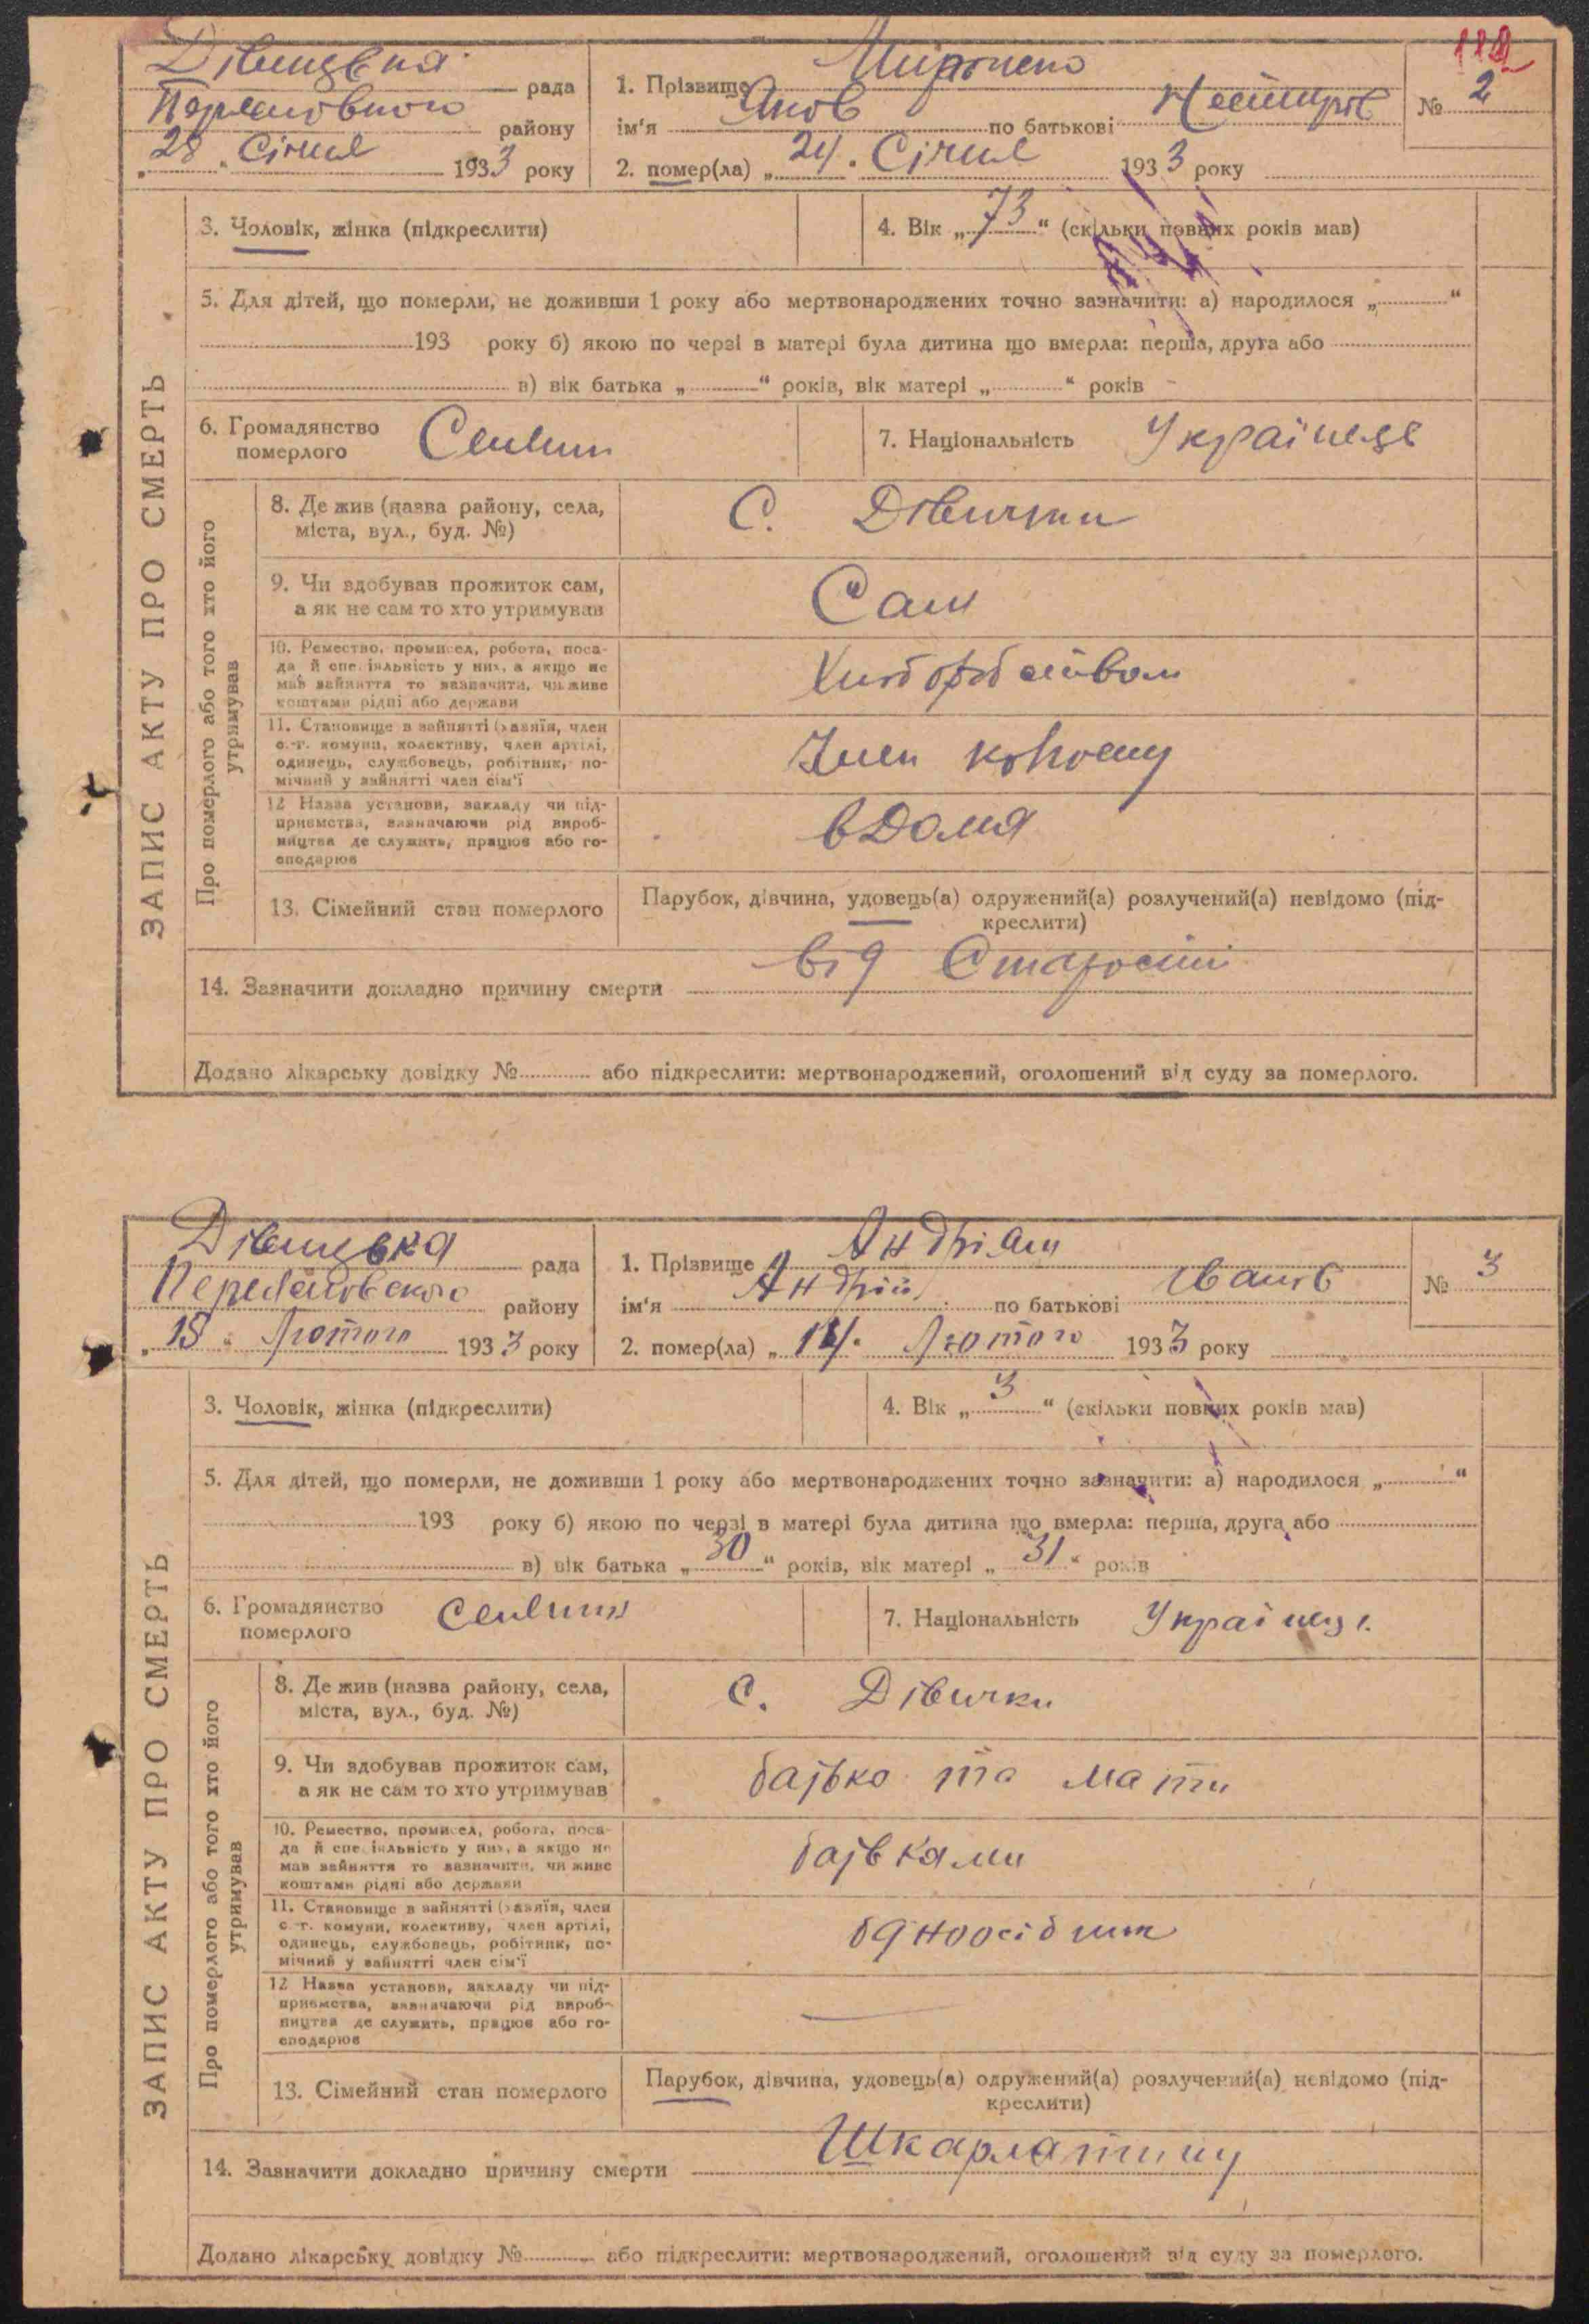 112
Дівицька рада
району
28 Січня 1933 року
1. Прізвище Міроненко
ім'я Яков по батькові Несторов
№ 2
2. помер(ла) „ 24 . Січня 1933 року
ЗАПИС АКТУ ПРО СМЕРТЬ
3. Чоловік, жінка (підкреслити)
4. Вік „ 73 “ (скільки повних років мав)
5. Для дітей, що померли, не доживши 1 року або мертвонароджених точно зазначити: а) народилося „ “
193 року б) якою по черзі в матері була дитина що вмерла: перша, друга або
в) вік батька „ “ років, вік матері „ “ років
6. Громадянство
померлого
7. Національність Українець
Про померлого або того хто його
утримував
8. Де жив (назва району, села,
міста, вул., буд. №)
С. Дівички
9. Чи здобував прожиток сам,
а як не сам то хто утримував
Сам
10. Ремество, промисел, робота, поса-
да й спеціяльність у них, а якщо не
мав зайняття то зазначити, чи живе
коштами рідні або держави
11. Становище в зайнятті (хазяїн, член
с.-г. комуни, колективу, член артілі,
одинець, службовець, робітник, по-
мічний у зайнятті член сім'ї
Член
12 Назва установи, закладу чи під-
приємства, зазначаючи рід вироб-
ництва де служить, працює або го-
сподарює
вдома
13. Сімейний стан померлого
Парубок, дівчина, удовець(а) одружений(а) розлучений(а) невідомо (під-
креслити)
14. Зазначити докладно причину смерти від Старости
Додано лікарську довідку № або підкреслити: мертвонароджений, оголошений від суду за померлого.
Дівицька рада
району
15 Лютого 1933 року
1. Прізвище Андріаш
ім'я Андрій по батькові Іванов
№ 3
2. помер(ла) „ 14 . Лютого 1933 року
ЗАПИС АКТУ ПРО СМЕРТЬ
3. Чоловік, жінка (підкреслити)
4. Вік „ 3 “ (скільки повних років мав)
5. Для дітей, що померли, не доживши 1 року або мертвонароджених точно зазначити: а) народилося „ “
193 року б) якою по черзі в матері була дитина що вмерла: перша, друга або
в) вік батька „ 30 “ років, вік матері „ 31 “ років
6. Громадянство
померлого
7. Національність Українець
Про померлого або того хто його
утримував
8. Де жив (назва району, села,
міста, вул., буд. №)
С. Дівички
9. Чи здобував прожиток сам,
а як не сам то хто утримував
батько та мати
10. Ремество, промисел, робота, поса-
да й спеціяльність у них, а якщо не
мав зайняття то зазначити, чи живе
коштами рідні або держави
батьками
11. Становище в зайнятті (хазяїн, член
с.-г. комуни, колективу, член артілі,
одинець, службовець, робітник, по-
мічний у зайнятті член сім'ї
12 Назва установи, закладу чи під-
приємства, зазначаючи рід вироб-
ництва де служить, працює або го-
сподарює
13. Сімейний стан померлого
Парубок, дівчина, удовець(а) одружений(а) розлучений(а) невідомо (під-
креслити)
14. Зазначити докладно причину смерти Шкарлатину
Додано лікарську довідку № або підкреслити: мертвонароджений, оголошений від суду за померлого.